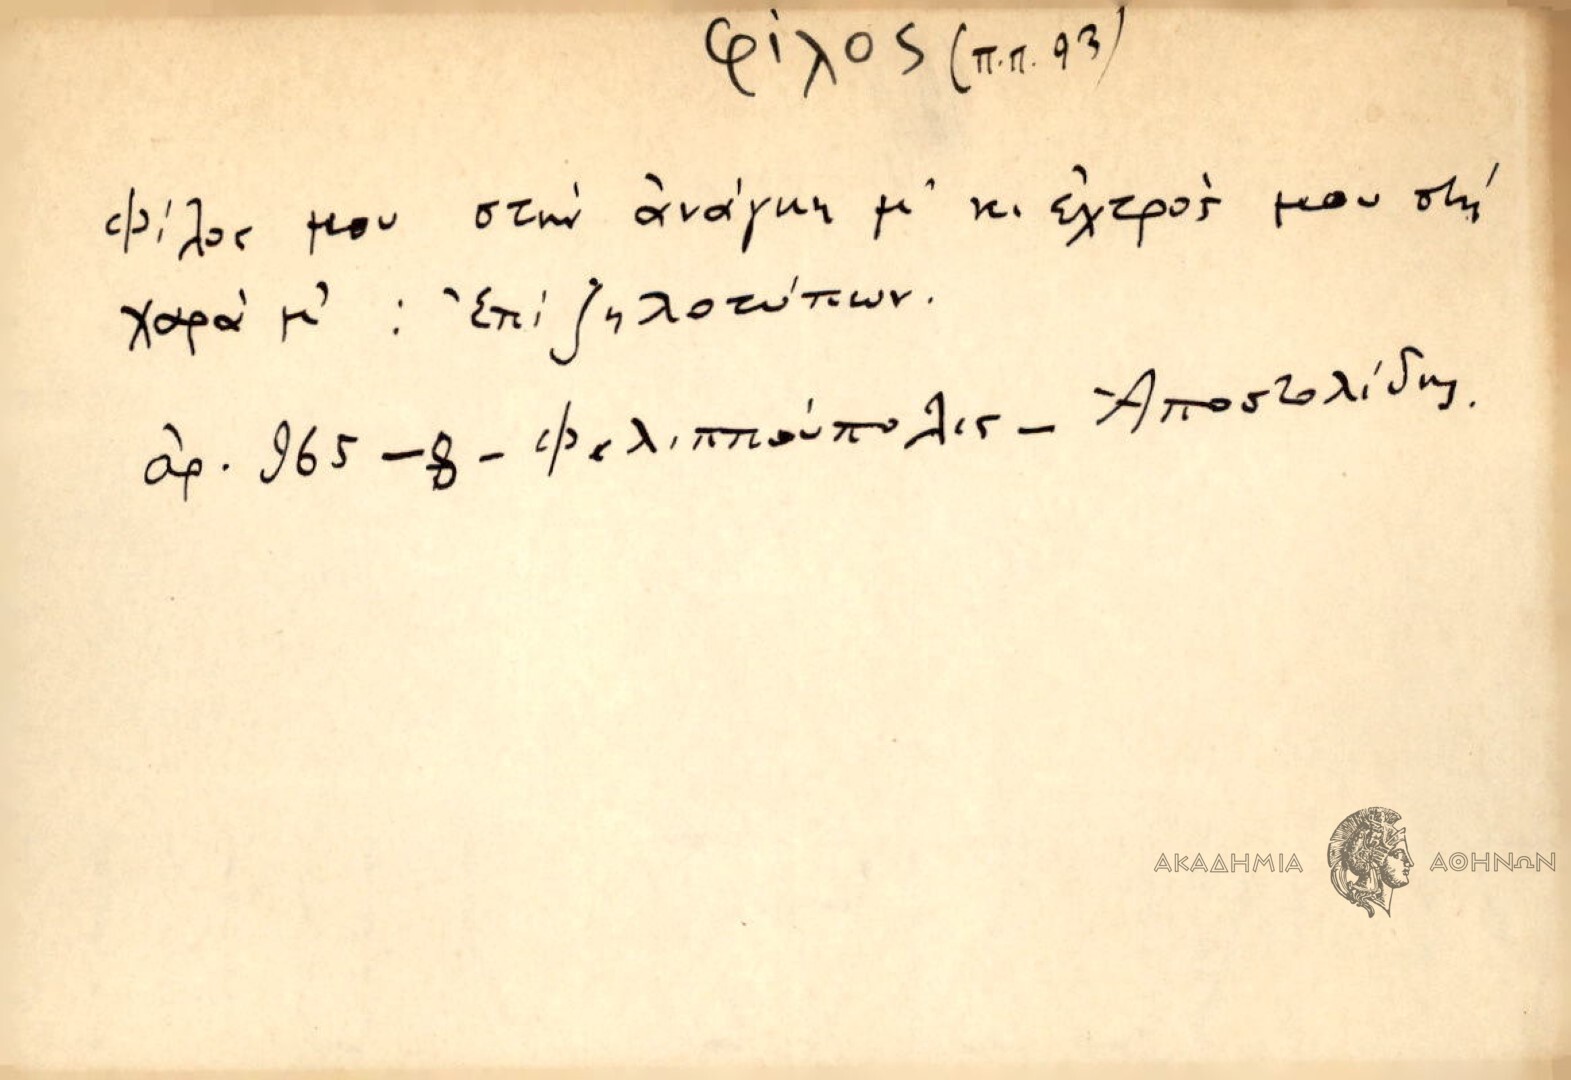 φίλος (π.π. 93)
Φίλος μου στὴν ἀνάγκη μ' κι ἐχτρὸς μου στή
χαρά μ' : Ἐπί ζηλοτύπων.
ἀρ. 965 - 8 - Φιλιππούπολις - Ἀποστολίδης.
ΑΚΑΔΗΜΙΑ ΑΘΗΝΩΝ